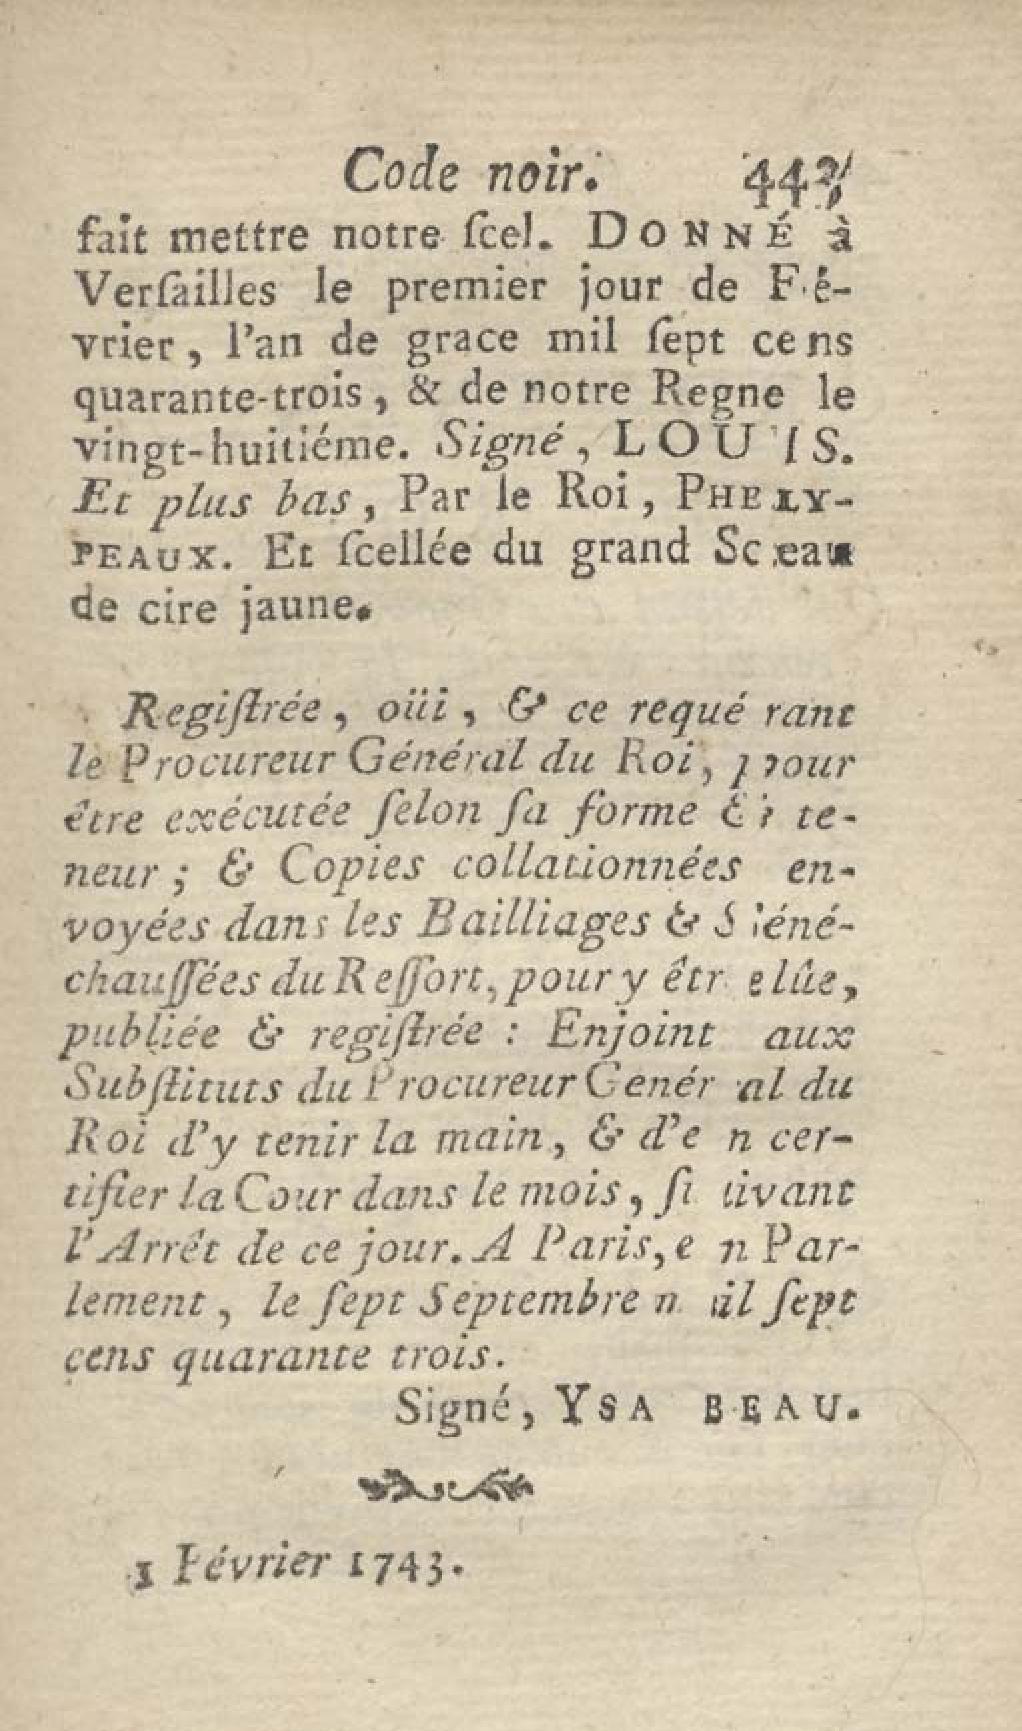 Code noir. 443
fait mettre notre ſcel. DONNÉ à
Verſailles le premier jour de Fé-
vrier, l'an de grace mil ſept cens
quarante-trois, & de notre Regne le
vingt-huitiéme. Signé, LOUIS.
Et plus bas, Par le Roi, PHELY-
PEAUX. Et ſcellée du grand Sceau
de cire jaune.
Regiſtrée, oüi, & ce requérant
le Procureur Général du Roi, pour
être exécutée ſelon ſa forme & te-
neur; & Copies collationnées en-
voyées dans les Bailliages & Séné-
chauſſées du Reſſort, pour y être lûe,
publiée & regiſtrée : Enjoint aux
Subſtituts du Procureur Genéral du
Roi d'y tenir la main, & d'en cer-
tifier la Cour dans le mois, ſuivant
l'Arrêt de ce jour. A Paris, en Par-
lement, le ſept Septembre mil ſept
cens quarante trois.
Signé, YSABEAU.
1 Février 1743.